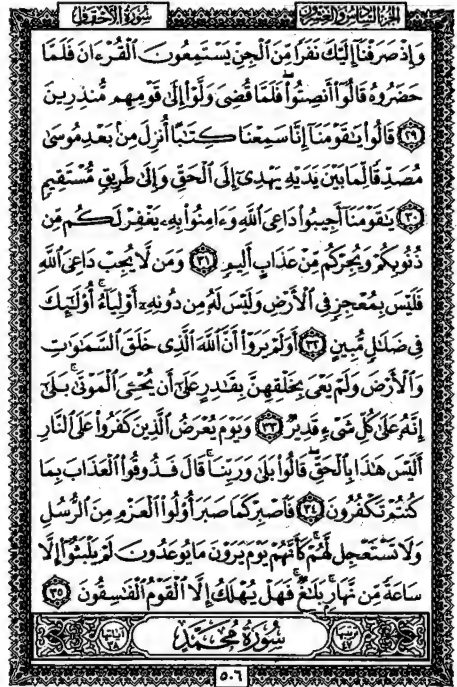 سُورَةُ الأَحْقَافِ
الجُزْءُ السَّادِسُ وَالعِشْرُونَ
وَإِذْ صَرَفْنَآ إِلَيْكَ نَفَرًا مِّنَ ٱلْجِنِّ يَسْتَمِعُونَ ٱلْقُرْءَانَ فَلَمَّا
حَضَرُوهُ قَالُوٓا۟ أَنصِتُوا۟ ۖ فَلَمَّا قُضِىَ وَلَّوْا۟ إِلَىٰ قَوْمِهِم مُّنذِرِينَ
٢٩ قَالُوا۟ يَٰقَوْمَنَآ إِنَّا سَمِعْنَا كِتَٰبًا أُنزِلَ مِنۢ بَعْدِ مُوسَىٰ
مُصَدِّقًا لِّمَا بَيْنَ يَدَيْهِ يَهْدِىٓ إِلَى ٱلْحَقِّ وَإِلَىٰ طَرِيقٍ مُّسْتَقِيمٍ
٣٠ يَٰقَوْمَنَآ أَجِيبُوا۟ دَاعِىَ ٱللَّهِ وَءَامِنُوا۟ بِهِۦ يَغْفِرْ لَكُم مِّن
ذُنُوبِكُمْ وَيُجِرْكُم مِّنْ عَذَابٍ أَلِيمٍ ٣١ وَمَن لَّا يُجِبْ دَاعِىَ ٱللَّهِ
فَلَيْسَ بِمُعْجِزٍ فِى ٱلْأَرْضِ وَلَيْسَ لَهُۥ مِن دُونِهِۦٓ أَوْلِيَآءُ ۚ أُو۟لَٰٓئِكَ
فِى ضَلَٰلٍ مُّبِينٍ ٣٢ أَوَلَمْ يَرَوْا۟ أَنَّ ٱللَّهَ ٱلَّذِى خَلَقَ ٱلسَّمَٰوَٰتِ
وَٱلْأَرْضَ وَلَمْ يَعْىَ بِخَلْقِهِنَّ بِقَٰدِرٍ عَلَىٰٓ أَن يُحْـِۧىَ ٱلْمَوْتَىٰ ۚ بَلَىٰٓ
إِنَّهُۥ عَلَىٰ كُلِّ شَىْءٍ قَدِيرٌ ٣٣ وَيَوْمَ يُعْرَضُ ٱلَّذِينَ كَفَرُوا۟ عَلَى ٱلنَّارِ
أَلَيْسَ هَٰذَا بِٱلْحَقِّ ۖ قَالُوا۟ بَلَىٰ وَرَبِّنَا ۚ قَالَ فَذُوقُوا۟ ٱلْعَذَابَ بِمَا
كُنتُمْ تَكْفُرُونَ ٣٤ فَٱصْبِرْ كَمَا صَبَرَ أُو۟لُوا۟ ٱلْعَزْمِ مِنَ ٱلرُّسُلِ
وَلَا تَسْتَعْجِل لَّهُمْ ۚ كَأَنَّهُمْ يَوْمَ يَرَوْنَ مَا يُوعَدُونَ لَمْ يَلْبَثُوٓا۟ إِلَّا
سَاعَةً مِّن نَّهَارٍۭ ۚ بَلَٰغٌ ۚ فَهَلْ يُهْلَكُ إِلَّا ٱلْقَوْمُ ٱلْفَٰسِقُونَ ٣٥
ترتيبها ٤٧
سُورَةُ مُحَمَّد
آياتها ٣٨
٥٠٦